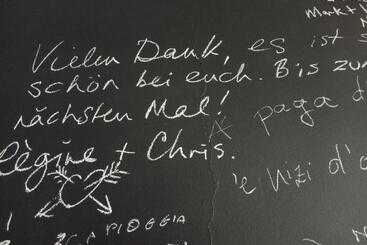 Markt
Vielen Dank, es ist s
schön bei euch. Bis zum
nächsten Mal!
A paga di
Règine + Chris.
e Nizi d'o
PIOGGIA